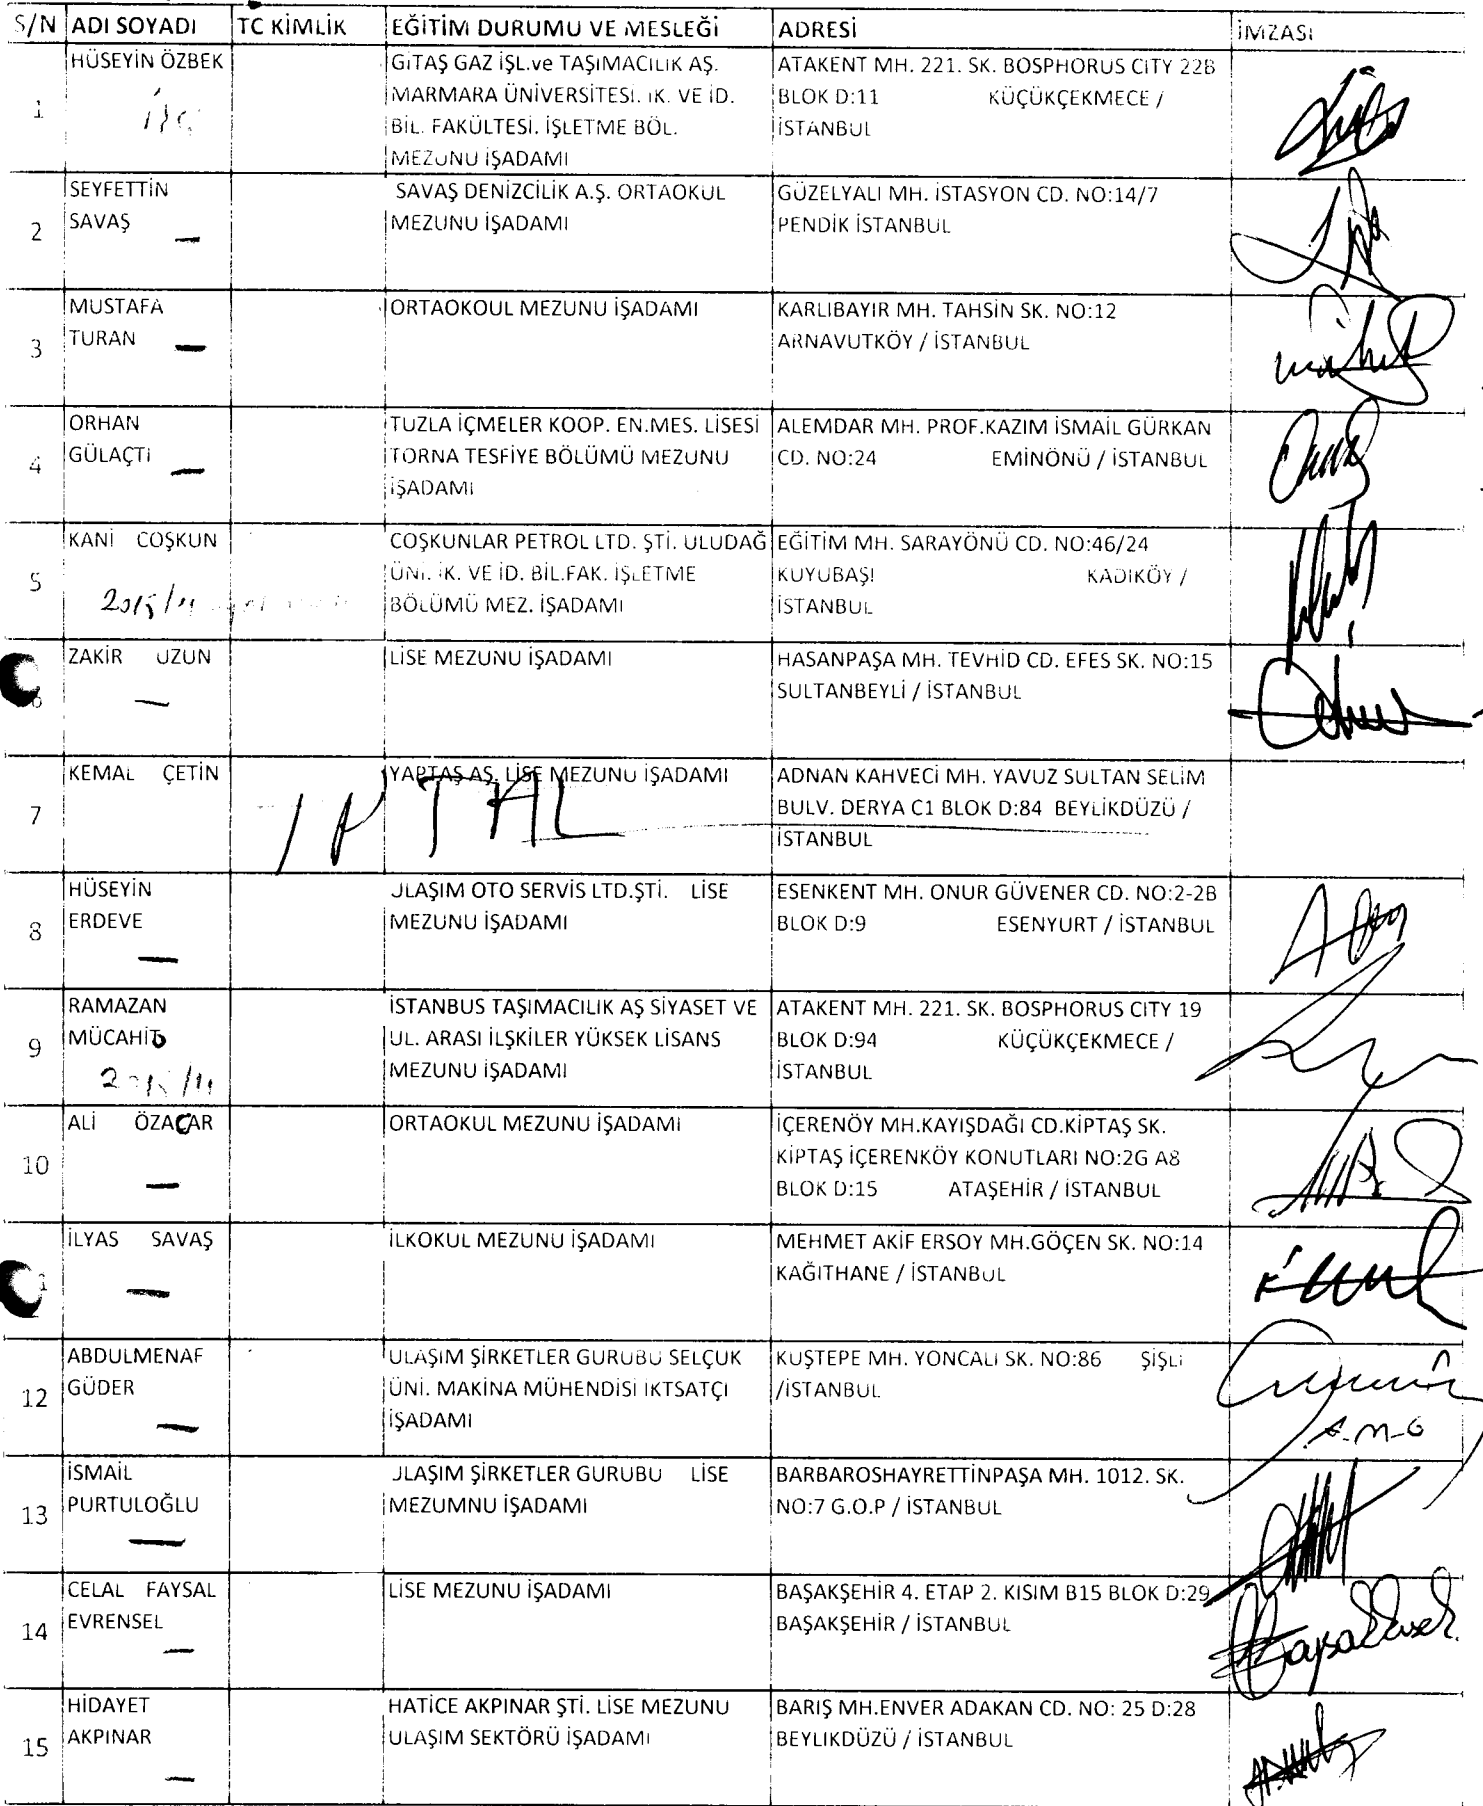 S/N ADI SOYADI TC KİMLİK EĞİTİM DURUMU VE MESLEĞİ ADRESİ İMZASI
1
HÜSEYİN ÖZBEK
GİTAŞ GAZ İŞL.ve TAŞIMACILIK AŞ.
MARMARA ÜNİVERSİTESİ. İK. VE İD.
BİL. FAKÜLTESİ. İŞLETME BÖL.
MEZUNU İŞADAMI
ATAKENT MH. 221. SK. BOSPHORUS CITY 22B
BLOK D:11 KÜÇÜKÇEKMECE /
İSTANBUL
2
SEYFETTİN
SAVAŞ
SAVAŞ DENİZCİLİK A.Ş. ORTAOKUL
MEZUNU İŞADAMI
GÜZELYALI MH. İSTASYON CD. NO:14/7
PENDİK İSTANBUL
3
MUSTAFA
TURAN
ORTAOKOUL MEZUNU İŞADAMI
KARLIBAYIR MH. TAHSİN SK. NO:12
ARNAVUTKÖY / İSTANBUL
4
ORHAN
GÜLAÇTI
TUZLA İÇMELER KOOP. EN.MES. LİSESİ
TORNA TESFİYE BÖLÜMÜ MEZUNU
İŞADAMI
ALEMDAR MH. PROF.KAZIM İSMAİL GÜRKAN
CD. NO:24 EMİNÖNÜ / İSTANBUL
5
KANİ COŞKUN
2015/11
COŞKUNLAR PETROL LTD. ŞTİ. ULUDAĞ
ÜNİ. İK. VE İD. BİL.FAK. İŞLETME
BÖLÜMÜ MEZ. İŞADAMI
EĞİTİM MH. SARAYÖNÜ CD. NO:46/24
KUYUBAŞI KADIKÖY /
İSTANBUL
6
ZAKİR UZUN
LİSE MEZUNU İŞADAMI
HASANPAŞA MH. TEVHİD CD. EFES SK. NO:15
SULTANBEYLİ / İSTANBUL
7
KEMAL ÇETİN
YAPTAŞ AŞ. LİSE MEZUNU İŞADAMI
İPTAL
ADNAN KAHVECİ MH. YAVUZ SULTAN SELİM
BULV. DERYA C1 BLOK D:84 BEYLİKDÜZÜ /
İSTANBUL
8
HÜSEYİN
ERDEVE
ULAŞIM OTO SERVİS LTD.ŞTİ. LİSE
MEZUNU İŞADAMI
ESENKENT MH. ONUR GÜVENER CD. NO:2-2B
BLOK D:9 ESENYURT / İSTANBUL
9
RAMAZAN
MÜCAHİD
2015/11
İSTANBUS TAŞIMACILIK AŞ SİYASET VE
UL. ARASI İLŞKİLER YÜKSEK LİSANS
MEZUNU İŞADAMI
ATAKENT MH. 221. SK. BOSPHORUS CITY 19
BLOK D:94 KÜÇÜKÇEKMECE /
İSTANBUL
10
ALİ ÖZACAR
ORTAOKUL MEZUNU İŞADAMI
İÇERENÖY MH.KAYIŞDAĞI CD.KİPTAŞ SK.
KİPTAŞ İÇERENKÖY KONUTLARI NO:2G A8
BLOK D:15 ATAŞEHİR / İSTANBUL
İLYAS SAVAŞ
İLKOKUL MEZUNU İŞADAMI
MEHMET AKİF ERSOY MH.GÖÇEN SK. NO:14
KAĞITHANE / İSTANBUL
12
ABDULMENAF
GÜDER
ULAŞIM ŞİRKETLER GURUBU SELÇUK
ÜNİ. MAKİNA MÜHENDİSİ İKTSATÇI
İŞADAMI
KUŞTEPE MH. YONCALI SK. NO:86 ŞİŞLİ
/İSTANBUL
A-M-G
13
İSMAİL
PURTULOĞLU
ULAŞIM ŞİRKETLER GURUBU LİSE
MEZUMNU İŞADAMI
BARBAROSHAYRETTİNPAŞA MH. 1012. SK.
NO:7 G.O.P / İSTANBUL
14
CELAL FAYSAL
EVRENSEL
LİSE MEZUNU İŞADAMI
BAŞAKŞEHİR 4. ETAP 2. KISIM B15 BLOK D:29
BAŞAKŞEHİR / İSTANBUL
15
HİDAYET
AKPINAR
HATİCE AKPINAR ŞTİ. LİSE MEZUNU
ULAŞIM SEKTÖRÜ İŞADAMI
BARIŞ MH.ENVER ADAKAN CD. NO: 25 D:28
BEYLIKDÜZÜ / İSTANBUL